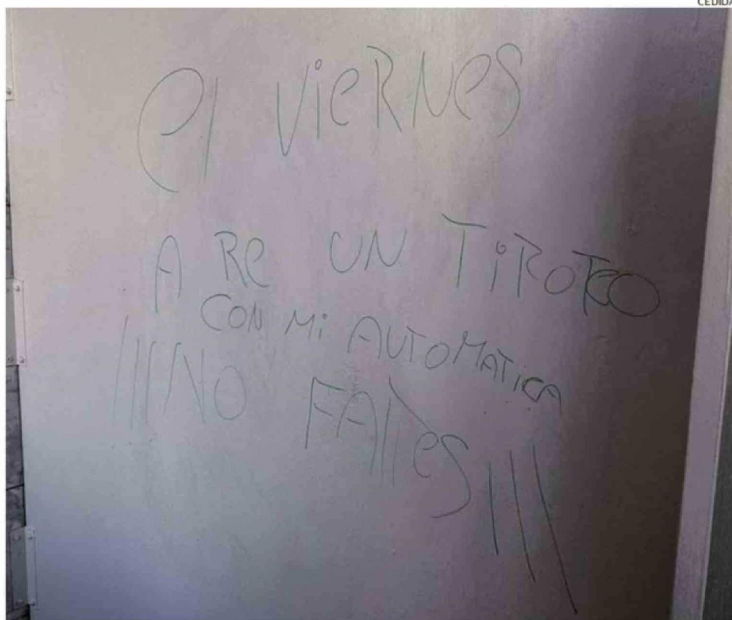 CEDIDA
el VieRNes
A Re UN TiROTeO
CON Mi AUTOMATICA
¡¡¡NO FAlTes!!!